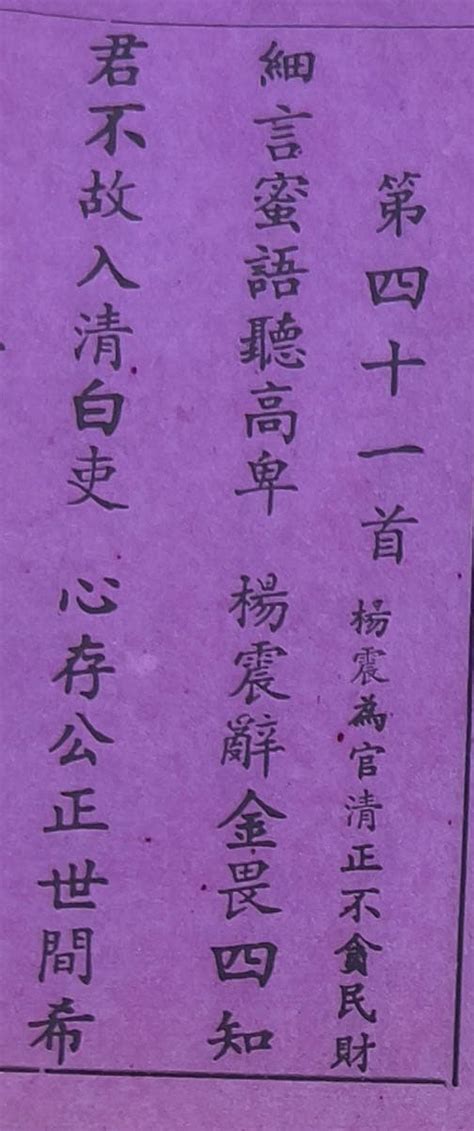 第四十一首 楊震為官清正不貪民財
細言蜜語聽高卑 楊震辭金畏四知
君不故入清白吏 心存公正世間希